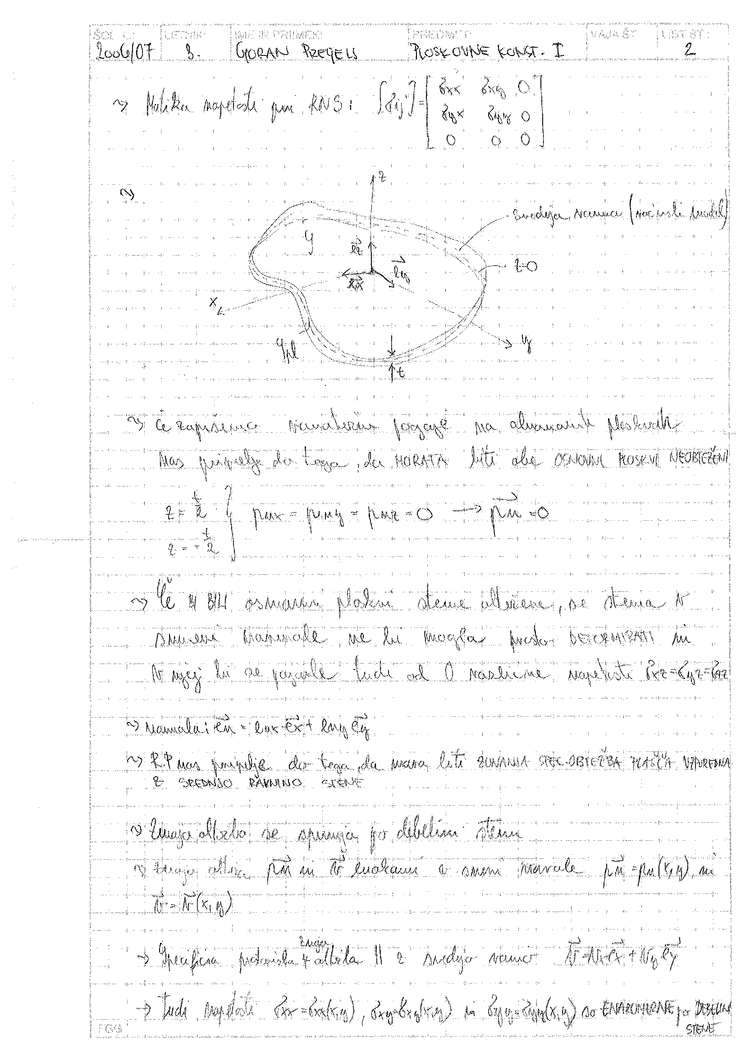 ŠOL. L.: LETNIK: IME IN PRIIMEK: PREDMET: VAJA ŠT.: LIST ŠT.:
2006/07 3. GORAN PREGELJ PLOSKOVNE KONST. I 2
~> Matrika napetosti pri RNS: [σij] = [σxx σxy 0
σyx σyy 0
0 0 0]
~>
z
srednja ravnina (računski model)
z=0
ez
ex
ey
x
y
t
~> Če zapišemo pogoje na ploskvah
nas pripelje do tega, da MORATA biti obe OSNOVNI PLOSKVI NEOBTEŽENI
z = t/2
z = -t/2 } pnx = pny = pnz = 0 → pn = 0
~> Če BI BILI osnovni ploskvi stene obtežene, se stena v
smeri normale ne bi mogla prosto DEFORMIRATI in
v njej bi se pojavile tudi od 0 različne napetosti σxz=σyz=σzz
~> normala: en = enx ex + eny ey
~> R.P. nas pripelje do tega, da mora biti ZUNANJA SPEC. OBTEŽBA PLAŠČA VZPOREDNA
Z SREDNJO RAVNINO STENE
~> Zunanja obtežba se spreminja po debelini stene
~> zunanja obtežba pn in v enakomerni v smeri normale pn = pn(x,y) in
v = v(x,y)
→ Specifična prostorska zunanja obtežba || z srednjo ravnino v = vx ex + vy ey
→ tudi napetosti σxx = σxx(x,y), σxy = σxy(x,y) in σyy = σyy(x,y) so ENAKOMERNE po DEBELINI
STENE
FGG